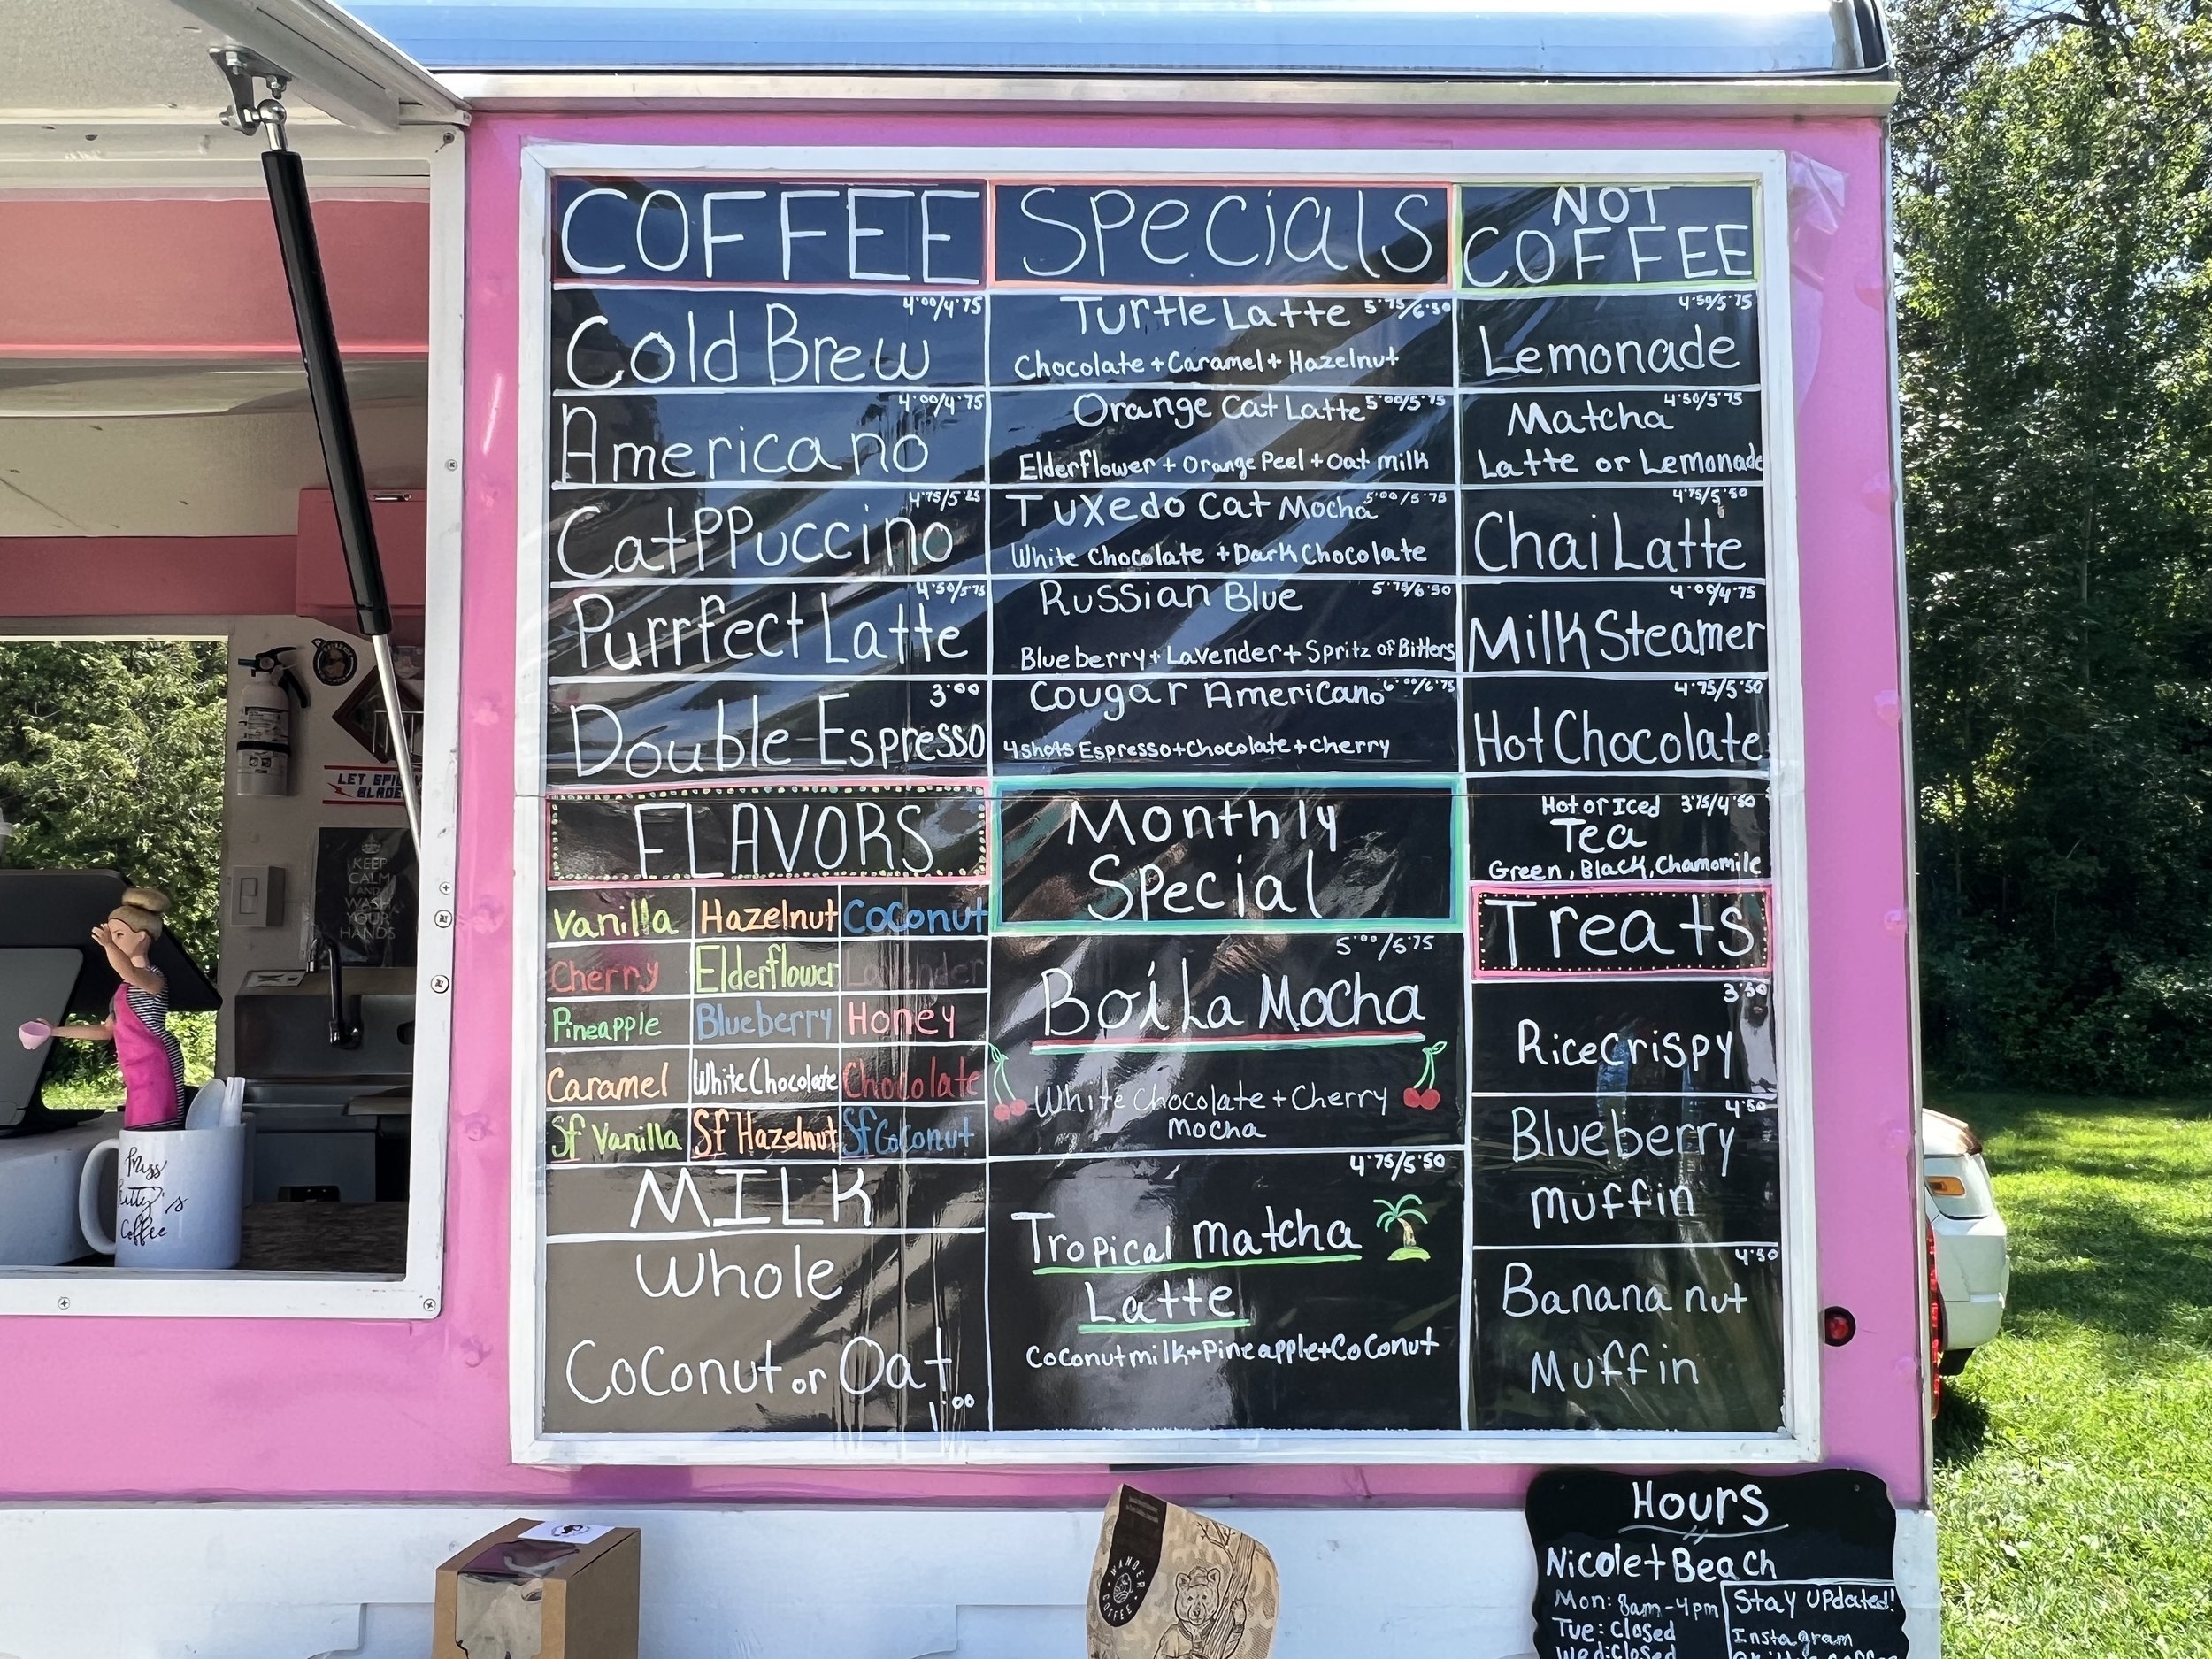 COFFEE
4.00/4.75
Cold Brew
4.00/4.75
Americano
4.75/5.25
CatPPuccino
4.50/5.75
Purrfect Latte
3.00
Double Espresso
FLAVORS
Vanilla Hazelnut Coconut
Cherry Elderflower Lavender
Pineapple Blueberry Honey
Caramel White Chocolate Chocolate
Sf Vanilla Sf Hazelnut Sf Coconut
MILK
Whole
Coconut or Oat
1.00
Specials
Turtle Latte 5.75/6.50
Chocolate + Caramel + Hazelnut
Orange Cat Latte 5.00/5.75
Elderflower + Orange Peel + Oat milk
Tuxedo Cat Mocha 5.00/5.75
White Chocolate + Dark Chocolate
Russian Blue 5.75/6.50
Blueberry + Lavender + Spritz of Bitters
Cougar Americano 6.00/6.75
4 shots Espresso + Chocolate + Cherry
Monthly
Special
5.00/5.75
Boi La Mocha
White Chocolate + Cherry
Mocha
4.75/5.50
Tropical Matcha
Latte
Coconut milk + Pineapple + Coconut
NOT
COFFEE
4.50/5.75
Lemonade
Matcha 4.50/5.75
Latte or Lemonade
4.75/5.50
Chai Latte
4.00/4.75
Milk Steamer
4.75/5.50
Hot Chocolate
Hot or Iced 3.75/4.50
Tea
Green, Black, Chamomile
Treats
3.50
Rice Crispy
4.50
Blueberry
muffin
4.50
Banana nut
Muffin
KEEP
CALM
AND
WASH
YOUR
HANDS
Miss
Kitty's
Coffee
WANDER
COFFEE
Hours
Nicolet Beach
Mon: 8am-4pm
Tue: Closed
Wed: Closed
Stay Updated!
Instagram